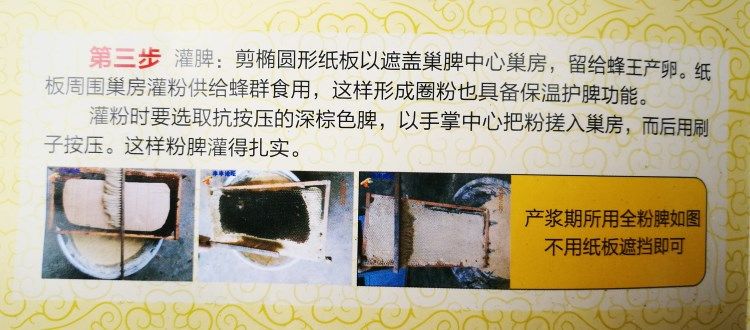 第三步 灌脾：剪椭圆形纸板以遮盖巢脾中心巢房，留给蜂王产卵。纸
板周围巢房灌粉供给蜂群食用，这样形成圈粉也具备保温护脾功能。
灌粉时要选取抗按压的深棕色脾，以手掌中心把粉搓入巢房，而后用刷
子按压。这样粉脾灌得扎实。
产浆期所用全粉脾如图
不用纸板遮挡即可